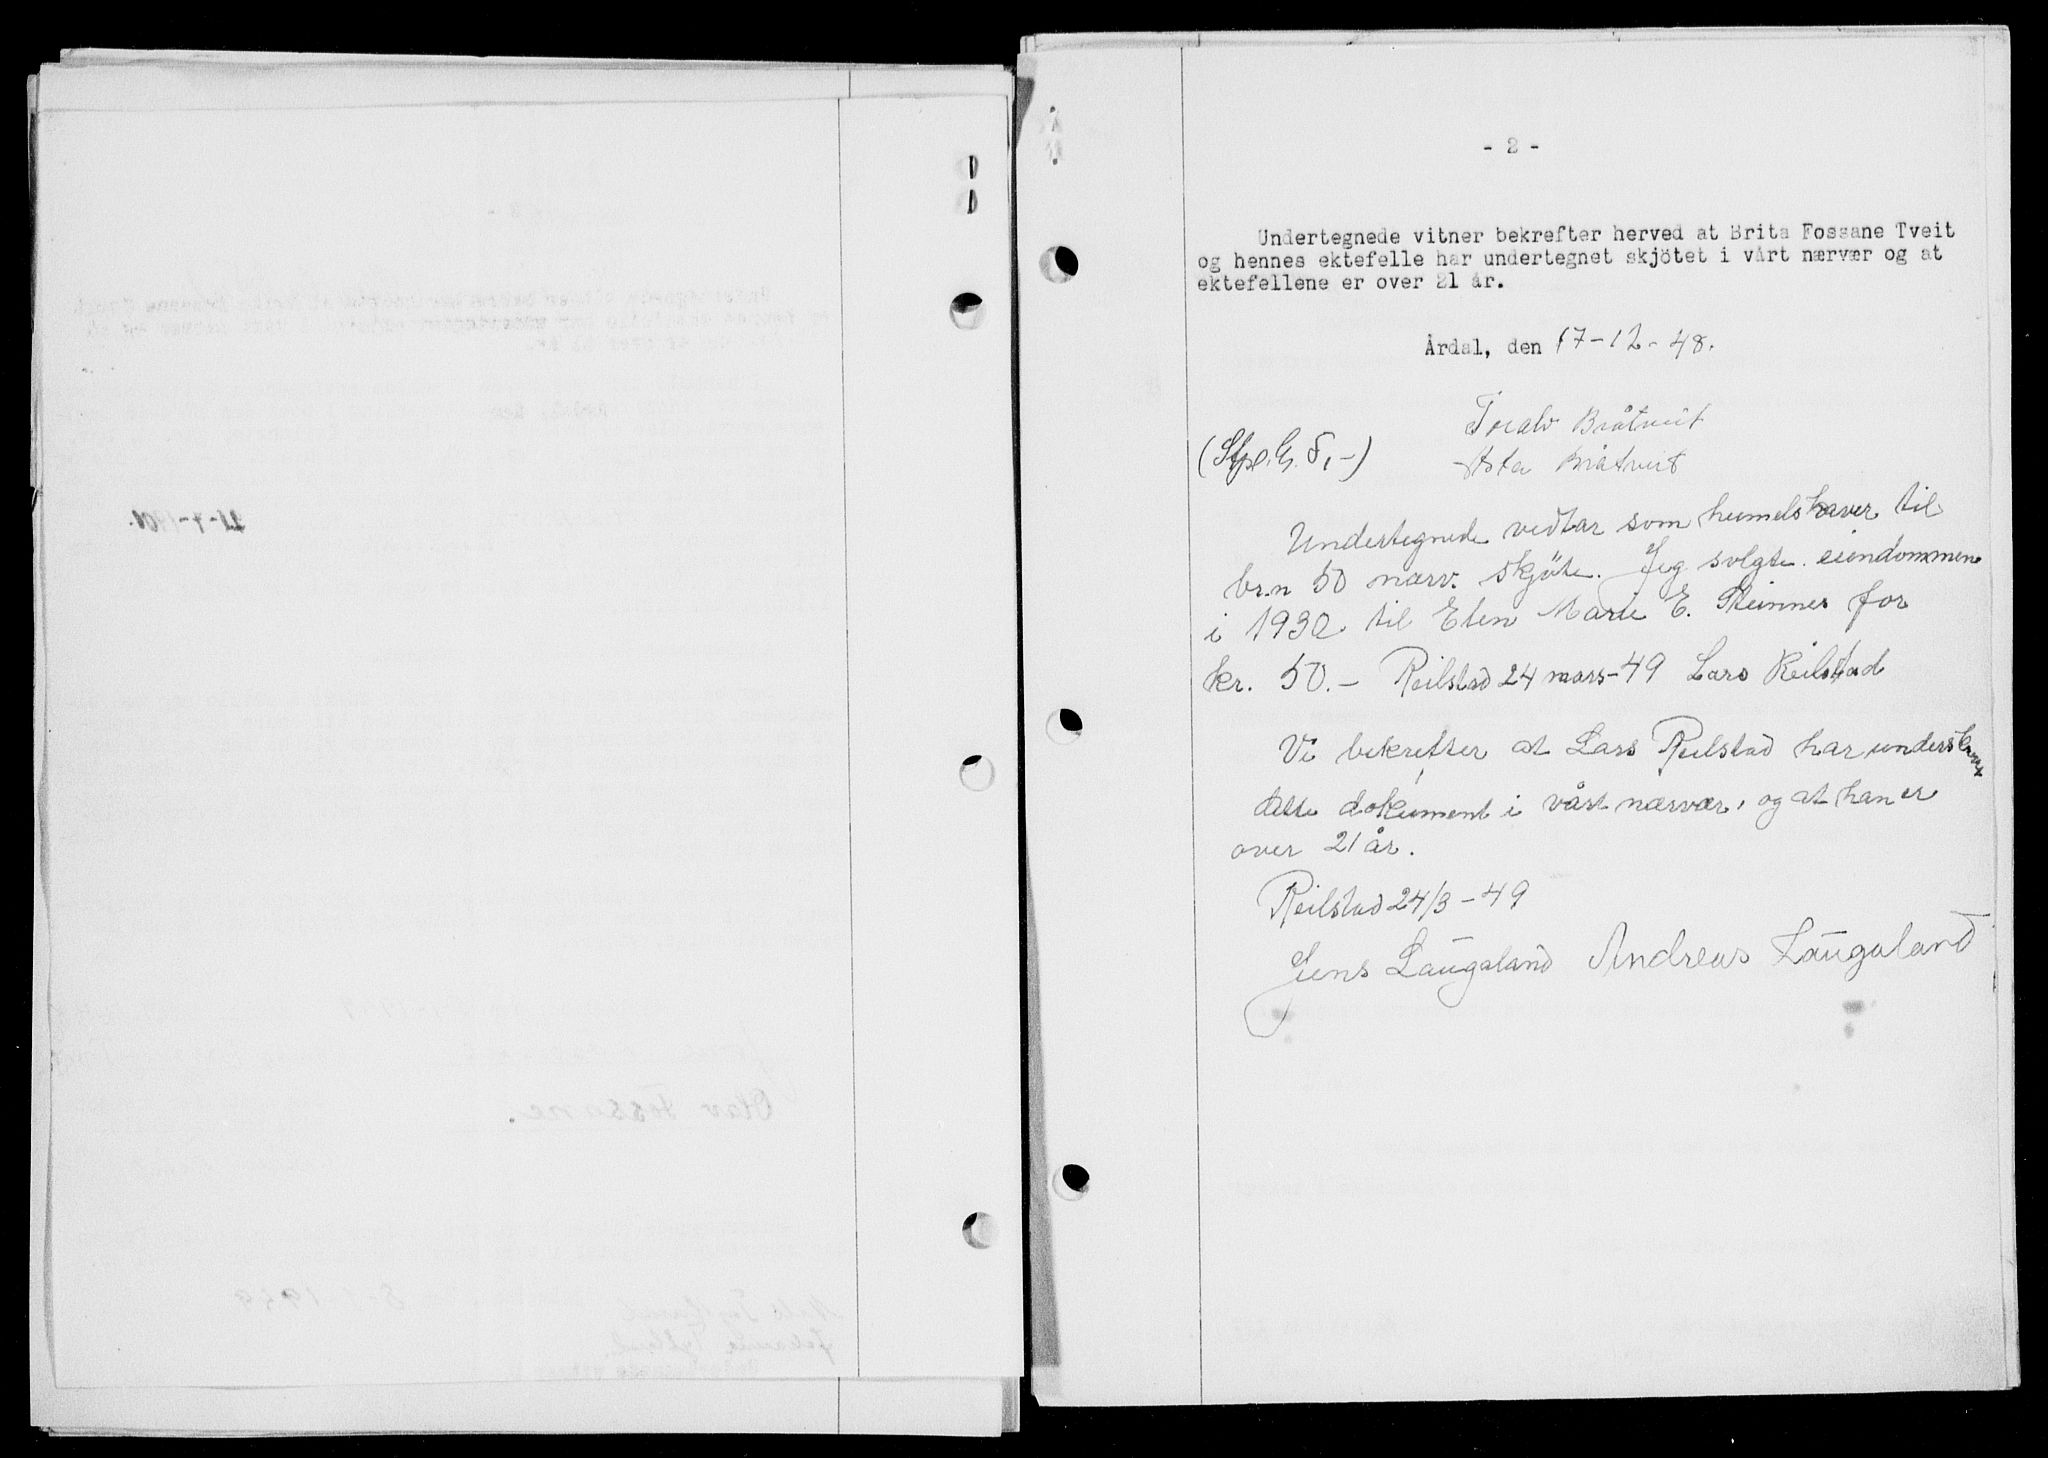 - 2 -
Undertegnede vitner bekrefter herved at Brita Fossane Tveit
og hennes ektefelle har undertegnet skjötet i vårt nærvær og at
ektefellene er over 21 år.
Årdal, den 17-12-48.
Toralv Bråtveit
(Stpl. G. 5,-) Asta Bråtveit
Undertegnede vedtar som heimelshaver til
br.n 50 nærv. skjöte. Jeg solgte eiendommen
i 1930 til Elen Marie E. Steinnes for
kr. 50.- Reilstad 24 mars-49 Lars Reilstad
Vi bekrefter at Lars Reilstad har underskrevet
dette dokument i vårt nærvær, og at han er
over 21 år.
Reilstad 24/3-49
Jens Laugaland Andreas Laugaland